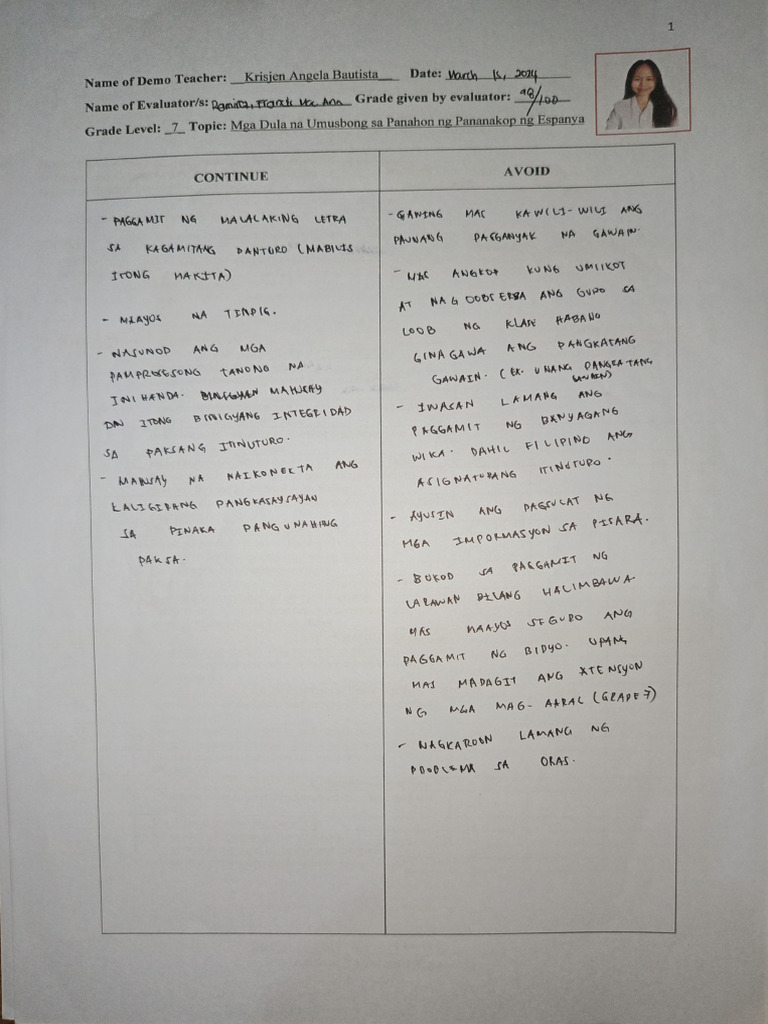 1
Name of Demo Teacher: Krisjen Angela Bautista Date: March 15, 2024
Name of Evaluator/s: Grade given by evaluator: 98/100
Grade Level: 7 Topic: Mga Dula na Umusbong sa Panahon ng Pananakop ng Espanya
CONTINUE
- PAGGAMIT NG MALALAKING LETRA
SA KAGAMITANG PANTURO (MABILIS
ITONG MAKITA)
- MAAYOS NA TINDIG.
- NASUNOD ANG MGA
PAMPROSESONG TANONG NA
INIHANDA. MAHUSAY
DIN ITONG BINIGYANG INTEGRIDAD
SA PAKSANG ITINUTURO.
- MAHUSAY NA NAIKONEKTA ANG
KALIGIRANG PANGKASAYSAYAN
SA PINAKA PANGUNAHING
PAKSA.
AVOID
- GAWING MAS KAWILI-WILI ANG
PAUNANG PAGGANYAK NA GAWAIN.
- MAS ANGKOP KUNG UMIIKOT
AT NAG OOBSERBA ANG GURO SA
LOOB NG KLASE HABANG
GINAGAWA ANG PANGKATANG
GAWAIN. (EX. UNANG PANGKATANG
GAWAIN)
- IWASAN LAMANG ANG
PAGGAMIT NG BANYAGANG
WIKA. DAHIL FILIPINO ANG
ASIGNATURANG ITINUTURO.
- AYUSIN ANG PAGSULAT NG
MGA IMPORMASYON SA PISARA.
- BUKOD SA PAGGAMIT NG
LARAWAN BILANG HALIMBAWA
MAS MAAYOS SEGURO ANG
PAGGAMIT NG BIDYO. UPANG
MAS MADAGIT ANG ATENSYON
NG MGA MAG-AARAL (GRADE 7)
- NAGKAROON LAMANG NG
PROBLEMA SA ORAS.